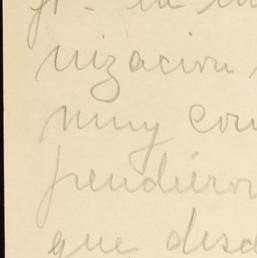 nización
muy con
pendieron
que desd